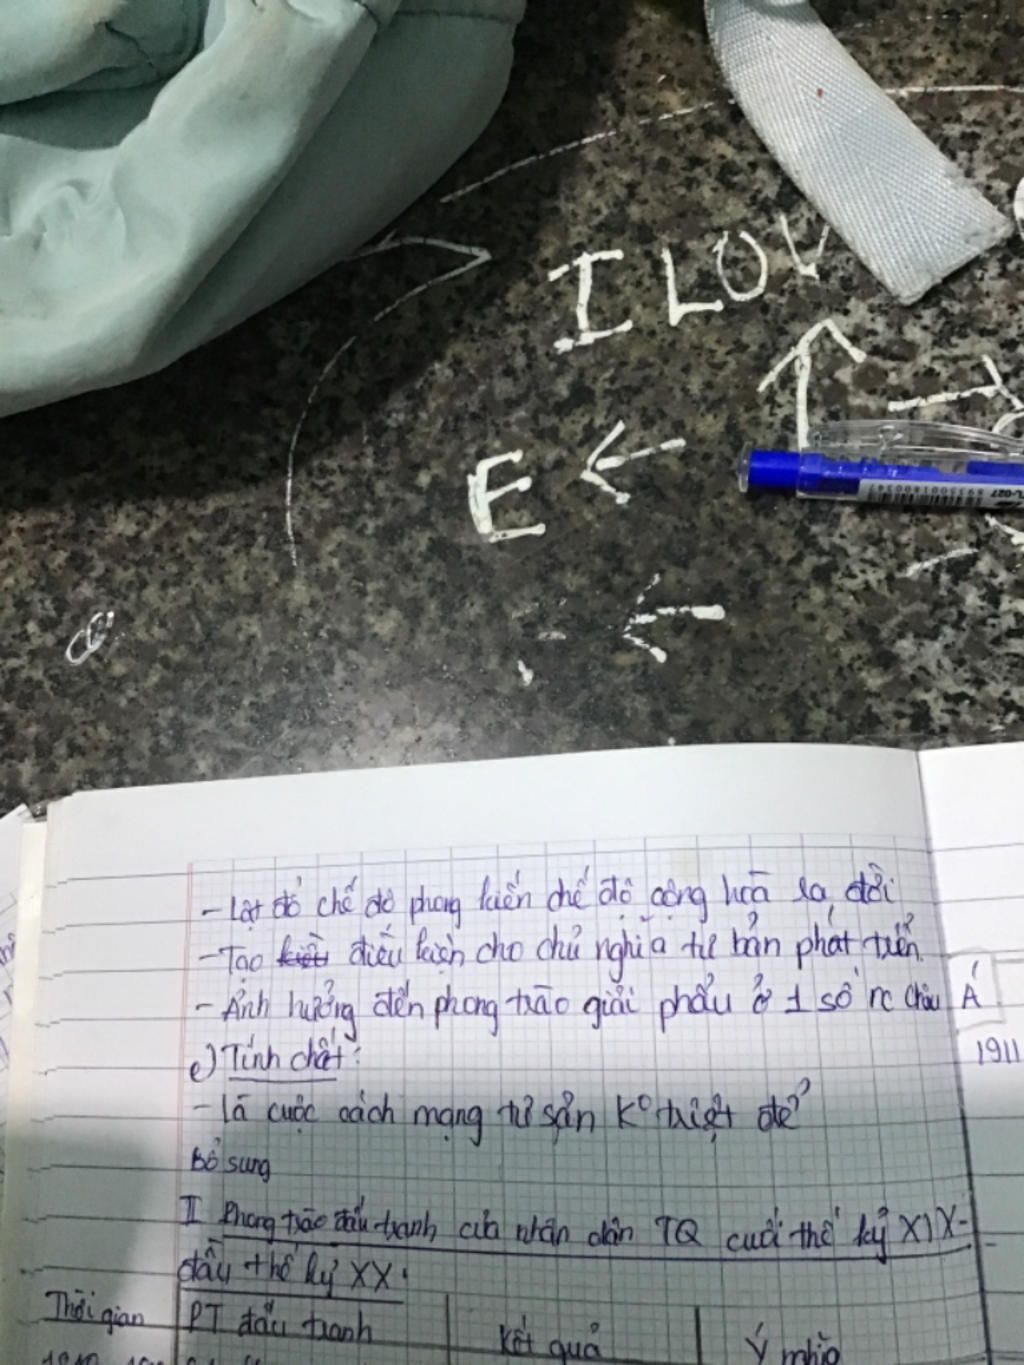 I LOV
E
TL-027
- Lật đổ chế độ phong kiến chế độ cộng hoà ra đời
- Tạo kiều điều kiện cho chủ nghĩa tư bản phát triển.
- Ảnh hưởng đến phong trào giải phẩu ở 1 số nc Châu Á
e) Tính chất:
- là cuộc cách mạng tư sản K° triệt để
Bổ sung
II Phong trào đấu tranh của nhân dân TQ cuối thế kỷ XIX-
đầu thế kỷ XX.
Thời gian PT đấu tranh Kết quả Ý nghĩa
1911